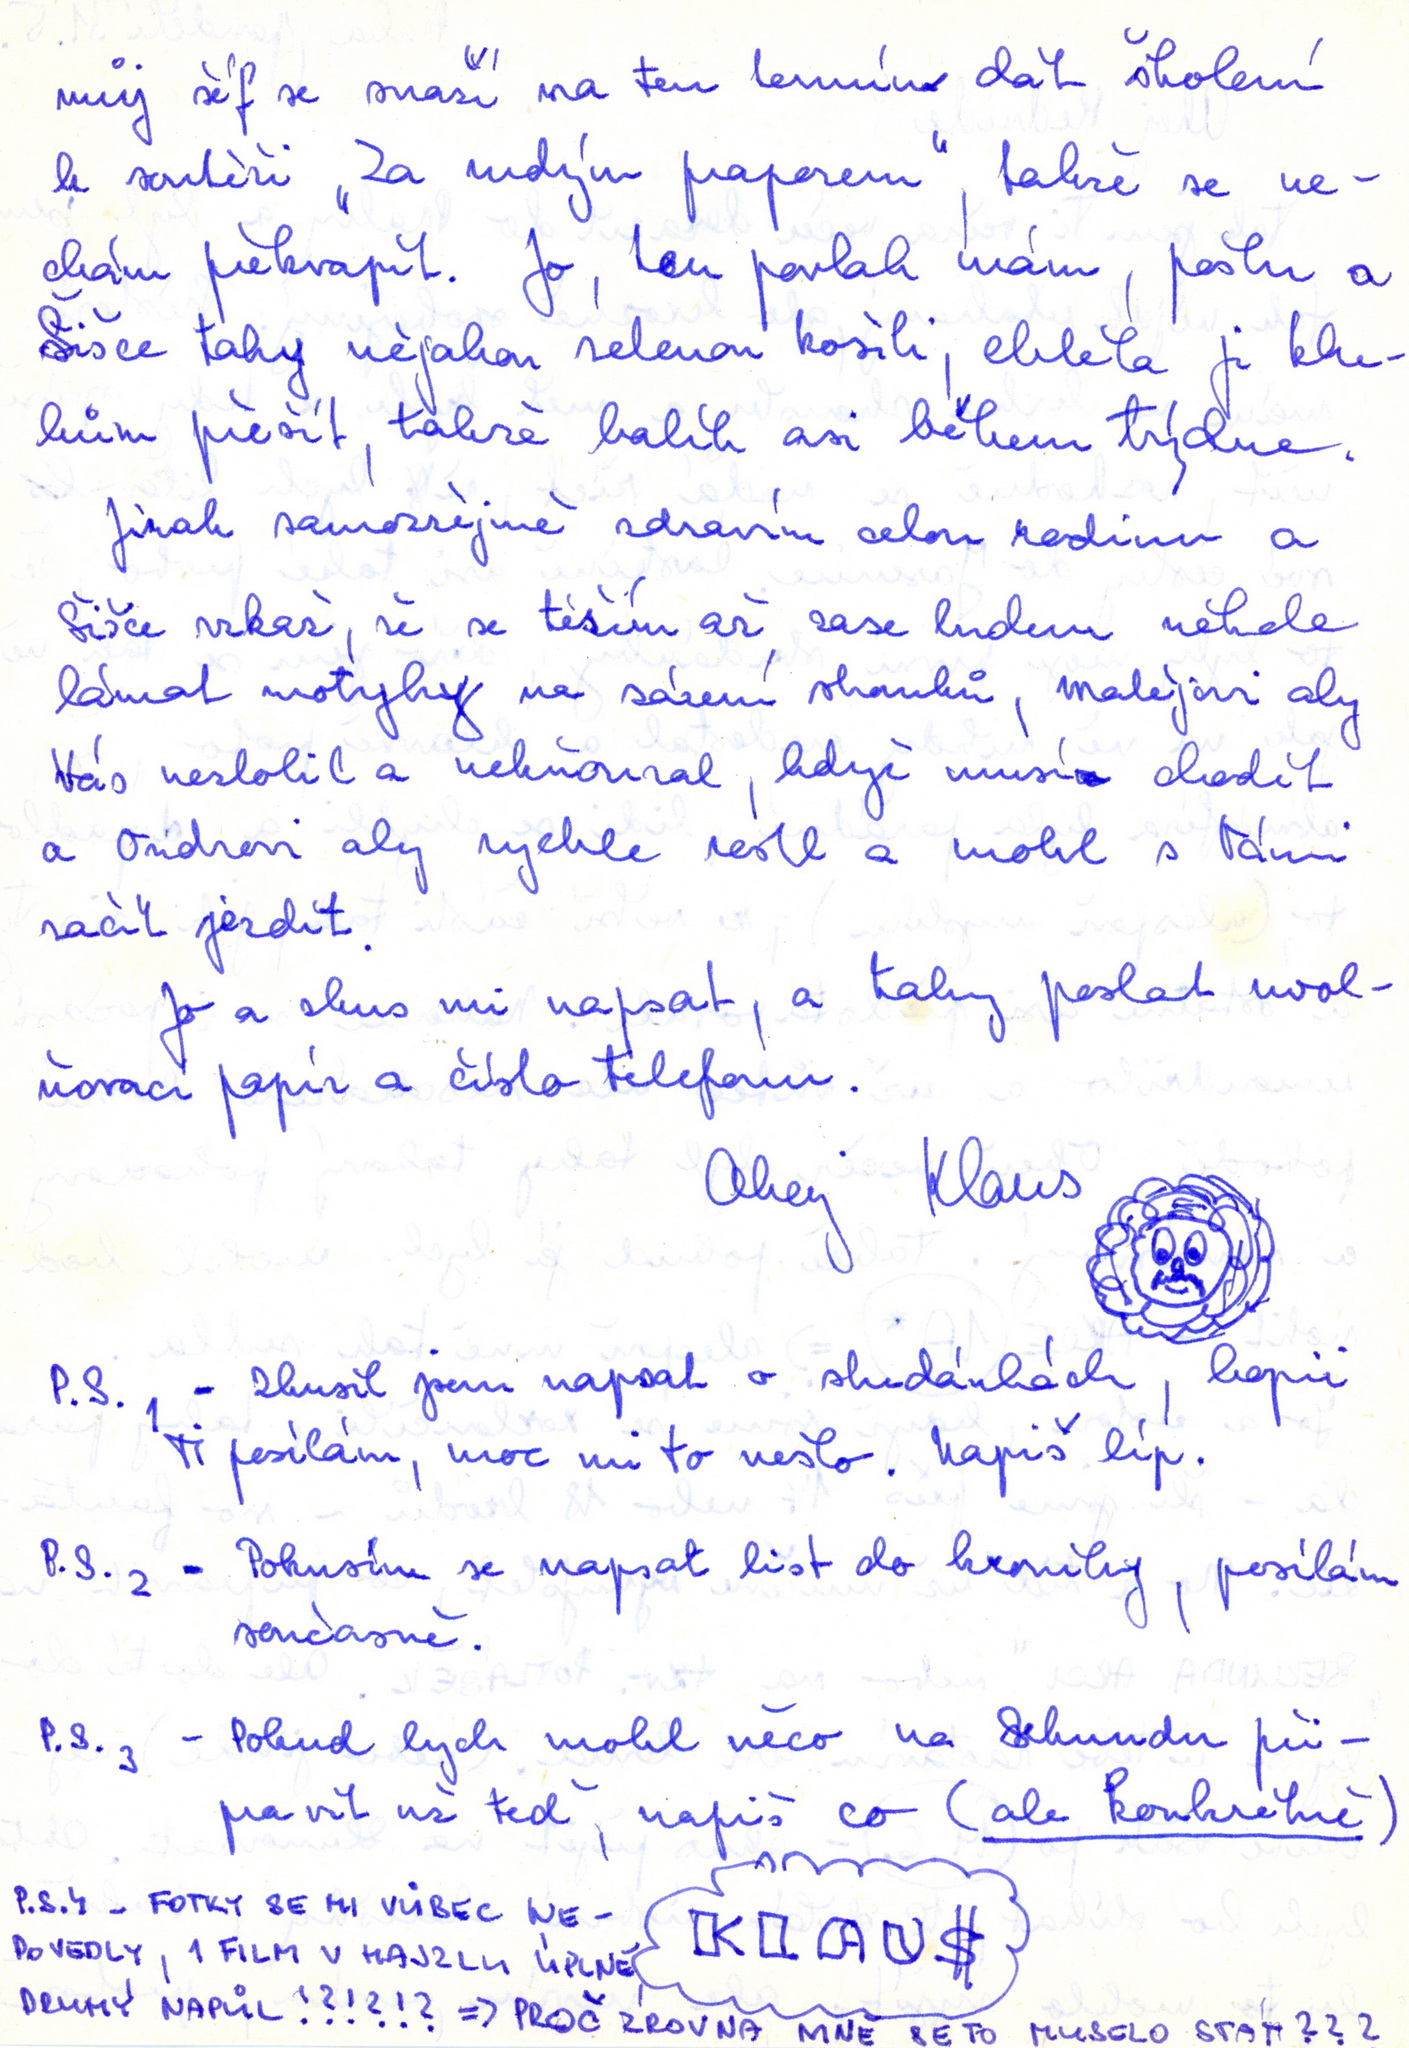 můj šéf se snaží na ten termín dát školení
k soutěži „Za rudým praporem", takže se ne-
chám překvapit. Jo, ten povlak mám, pošlu a
Šišce taky nějakou zelenou košili, chtěla ji klu-
kům přešít, takže balík asi během týdne.
Jinak samozřejmě zdravím celou rodinu a
Šišce vzkaž, že se těším až zase budem někde
lámat motyky na sázení stromků, Matějovi aby
Vás nezlobil a nekňoural, když musí chodit
a Ondrovi aby rychle rostl a mohl s Vámi
začít jezdit.
Jo a zkus mi napsat, a taky poslat uvol-
ňovací papír a číslo telefonu.
Ahoj Klaus
P.S. 1 - Zkusil jsem napsat o skedánkách, kopii
Ti posílám, moc mi to nešlo. Napiš líp.
P.S. 2 - Pokusím se napsat list do kroniky, posílám
současně.
P.S. 3 - Pokud bych mohl něco na Sekundu při-
pravit už teď, napiš co (ale konkrétně)
P.S.4 - FOTKY SE MI VŮBEC NE-
POVEDLY, 1 FILM V HAJZLU ÚPLNĚ,
DRUHÝ NAPŮL!?!?!? => PROČ ZROVNA MNĚ SE TO MUSELO STÁT???
KLAU$